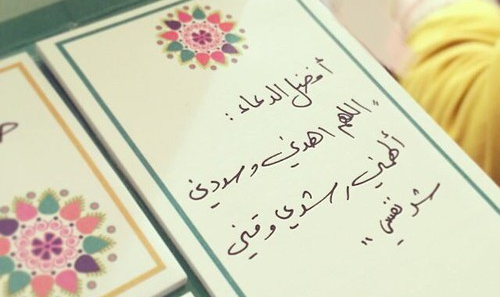 أفضل الدعاء :
"اللهم اهدني وسددني
ألهمني رشدي وقني
شر نفسي"